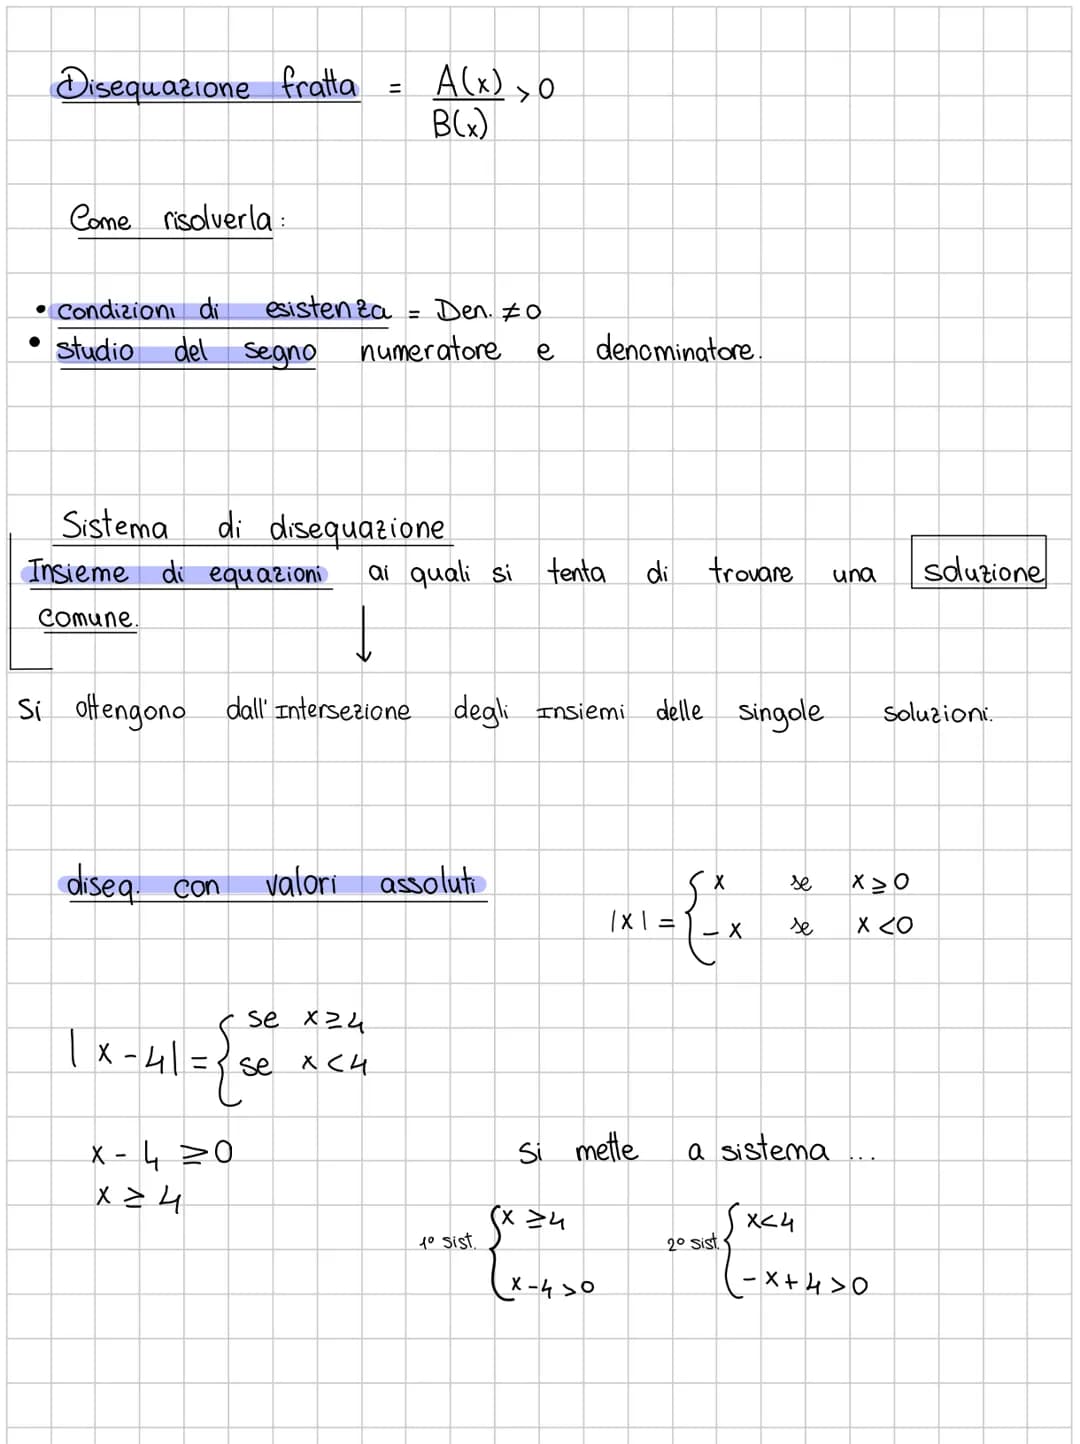 Disequazione fratta = A(x)/B(x) > 0
Come risolverla:
• condizioni di esistenza = Den. ≠ 0
• studio del segno numeratore e denominatore.
Sistema di disequazione
Insieme di equazioni ai quali si tenta di trovare una soluzione
comune.
↓
Si ottengono dall'Intersezione degli Insiemi delle singole soluzioni.
diseq. con valori assoluti
|x| = { x se x ≥ 0
- x se x < 0
|x - 4| = { se x ≥ 4
se x < 4
x - 4 ≥ 0
x ≥ 4
Si mette a sistema ...
1° sist. { x ≥ 4
x - 4 > 0
2° sist. { x < 4
- x + 4 > 0